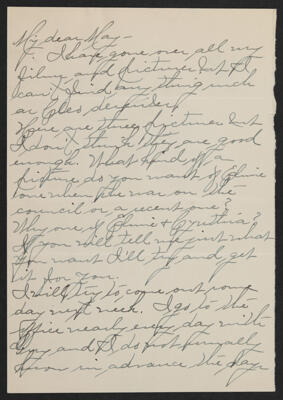 My dear May –
I have gone over all my
files and pictures but I
can't find anything much
as Cleo desired.
Here are three pictures but
I don't think they are good
enough. What kind of a
picture do you want of Elmie
one when she was on the
council or a recent one?
Why one of Elmie &
If you will tell me just what
you want I'll try and get
it for you.
I will try to come out some
day next week. I go to the
office nearly every day with
and I do not usually
know in advance the day